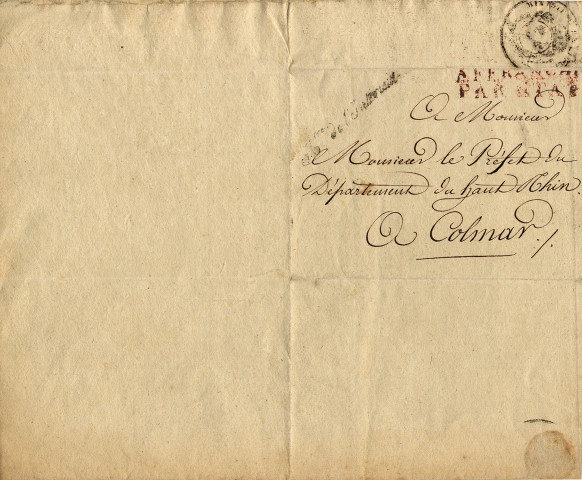 AFFRANCHI
PAR ÉTAT
de l'Intérieur
A Monsieur
Monsieur le Préfet du
Département du haut Rhin.
A Colmar./.